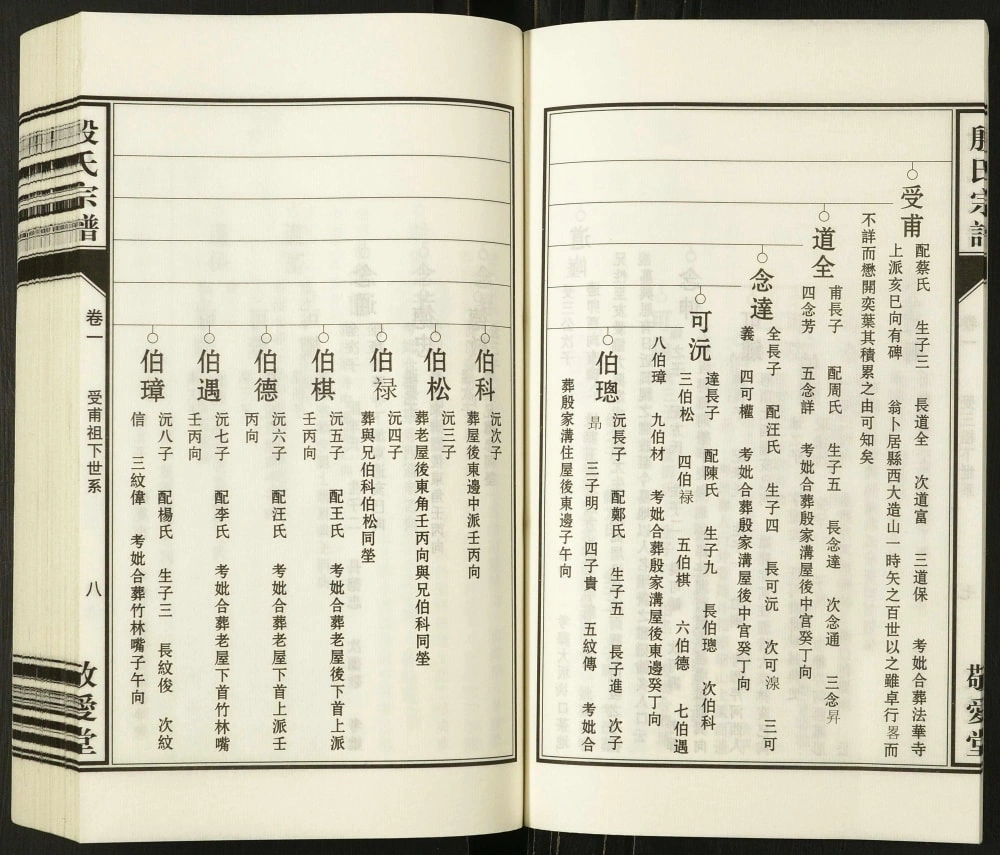 殷氏宗譜
敬愛堂
受甫
配蔡氏 生子三 長道全 次道富 三道保 考妣合葬法華寺
上派亥巳向有碑 翁卜居縣西大造山一時矢之百世以之雖卓行畧而
不詳而懋開奕葉其積累之由可知矣
道全
甫長子 配周氏 生子五 長念達 次念通 三念昇
四念芳 五念詳 考妣合葬殷家溝屋後中宫癸丁向
念達
全長子 配汪氏 生子四 長可沅 次可湶 三可
義 四可權 考妣合葬殷家溝屋後中宫癸丁向
可沅
達長子 配陳氏 生子九 長伯璁 次伯科
三伯松 四伯禄 五伯棋 六伯德 七伯遇
八伯璋 九伯材 考妣合葬殷家溝屋後東邊癸丁向
伯璁
沅長子 配鄭氏 生子五 長子進 次子
昻 三子明 四子貴 五紋傳 考妣合
葬殷家溝住屋後東邊子午向
伯科
沅次子
葬屋後東邊中派壬丙向
伯松
沅三子
葬老屋後東角壬丙向與兄伯科同塋
伯禄
沅四子
葬與兄伯科伯松同塋
伯棋
沅五子 配王氏 考妣合葬老屋後下首上派
壬丙向
伯德
沅六子 配汪氏 考妣合葬老屋下首上派壬
丙向
伯遇
沅七子 配李氏 考妣合葬老屋下首竹林嘴
壬丙向
伯璋
沅八子 配楊氏 生子三 長紋俊 次紋
信 三紋偉 考妣合葬竹林嘴子午向
殷氏宗譜
卷一
受甫祖下世系
八
敬愛堂